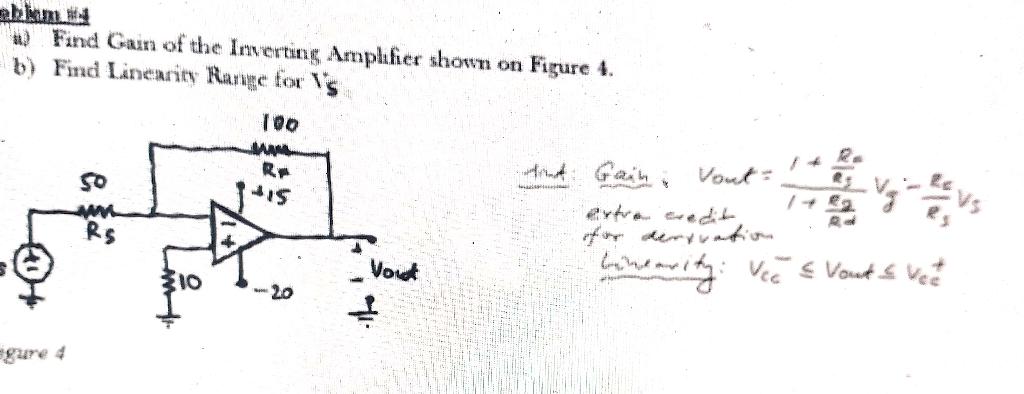 #4
a) Find Gain of the Inverting Amplifier shown on Figure 4.
b) Find Linearity Range for Vs
100
RF
+15
50
Rs
-
+
10
-20
+
Vout
-
Gain: Vout = (1 + RF/Rs)/(1 + R2/Rd) Vg - RF/Rs Vs
extra credit
for derivation
Linearity: Vcc⁻ ≤ Vout ≤ Vcc⁺
Figure 4